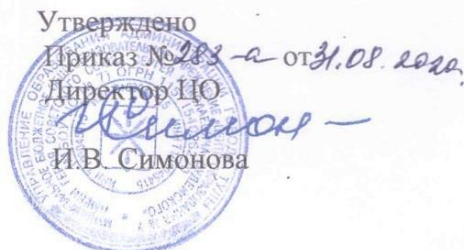 Утверждено
Приказ №283-а от 31.08.2020г.
Директор ЦО
И.В. Симонова